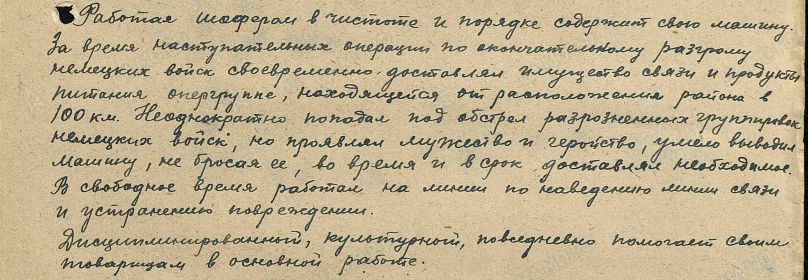 Работая шофером в чистоте и порядке содержит свою машину.
За время наступательных операции по окончательному разгрому
немецких войск своевременно доставлял имущество связи и продукты
питания опергруппе, находящейся от расположения района в
100 км. Неоднократно попадал под обстрел разрозненных группировок
немецких войск, но проявляя мужество и геройство, умело выводил
машину, не бросая ее, во время и в срок доставлял необходимое.
В свободное время работал на линии по наведению линии связи
и устранению повреждении.
Дисциплинированный, культурный, повседневно помогает своим
товарищам в основной работе.